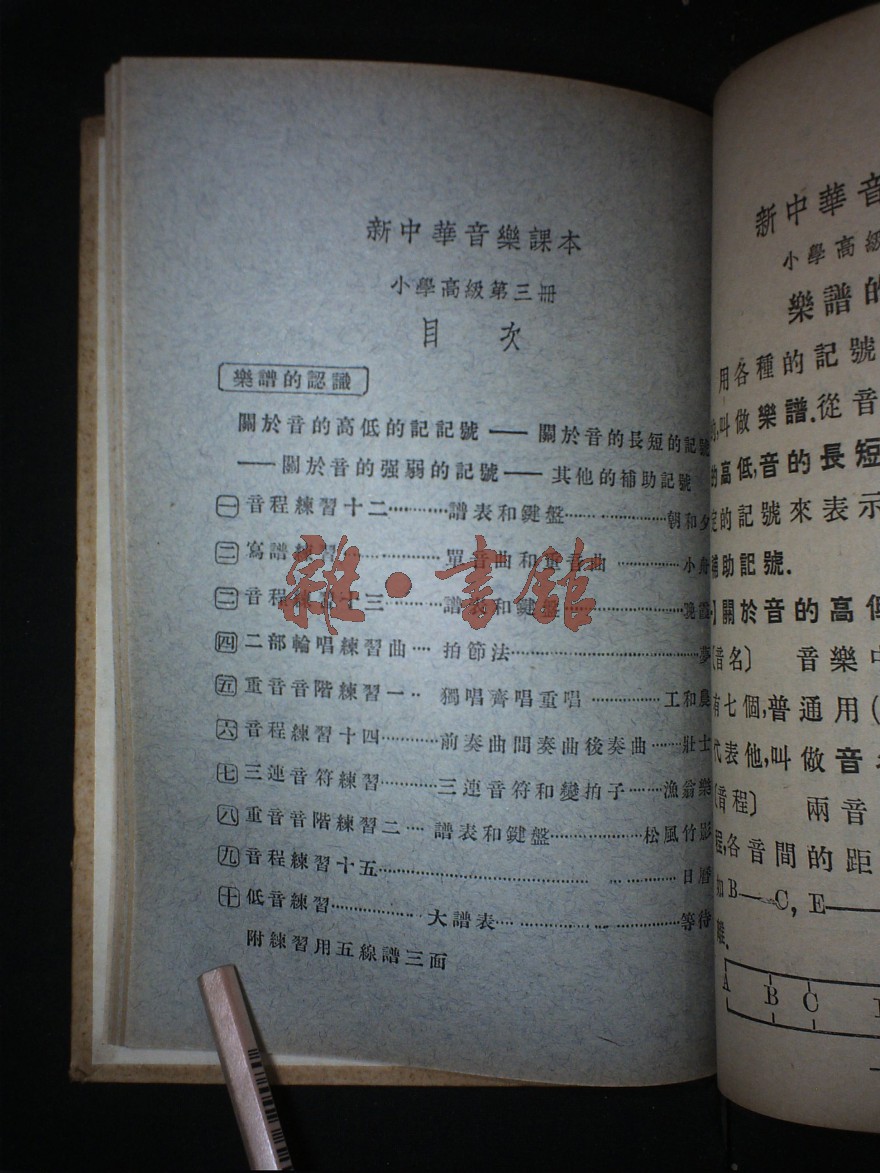 新中華音樂課本
小學高級第三册
目 次
樂譜的認識
關於音的高低的記記號 —— 關於音的長短的記號
—— 關於音的强弱的記號 —— 其他的補助記號
㊀ 音程練習十二………譜表和鍵盤………………朝和夕
㊁ 寫譜練習………………單音曲和複音曲…………小舟
㊂ 音程練習十三………譜表和鍵盤………………晚霞
㊃ 二部輪唱練習曲…拍節法………………………夢
㊄ 重音音階練習一‥獨唱齊唱重唱……………工和農
㊅ 音程練習十四………前奏曲間奏曲後奏曲……壯士
㊆ 三連音符練習………三連音符和變拍子……漁翁樂
㊇ 重音音階練習二…譜表和鍵盤……………松風竹影
㊈ 音程練習十五…………………………………日曆
㊉ 低音練習………………大譜表…………………等待
附練習用五線譜三面
雜·書館
新中華音
小學高級
樂譜的
用各種的記號
叫做樂譜.從音
的高低,音的長短
定的記號來表示
補助記號.
關於音的高低
〔音名〕 音樂中
有七個,普通用(
代表他,叫做音
〔音程〕 兩音
程,各音間的距
如B—C, E—
離.
A B C